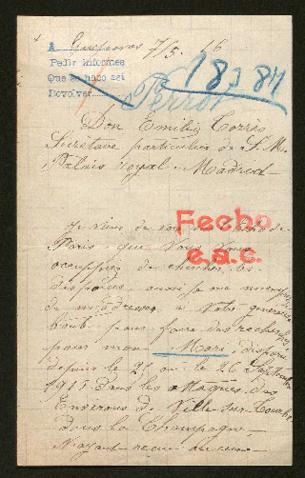 A Guerreros 7/5. 16
Pedir informes
Que se haga así
Devolver
18784
Perrot
Don Emilio Torrès
Secrétaire particulier de S. M.
Palais royal - Madrid -
Fecho
e.a.c.
Je viens de voir
Paris que vous vous
occuppiez de chercher les
disparus, aussi je me
m'adresser à votre
bonté pour faire des recherches
pour mon Mari, disparu
depuis le 25 ou le 26 Septembre
1915 Dans les attaques des
Environs de Ville-sur-Tourbe
dans la Champagne -
N'ayant reçu aucune